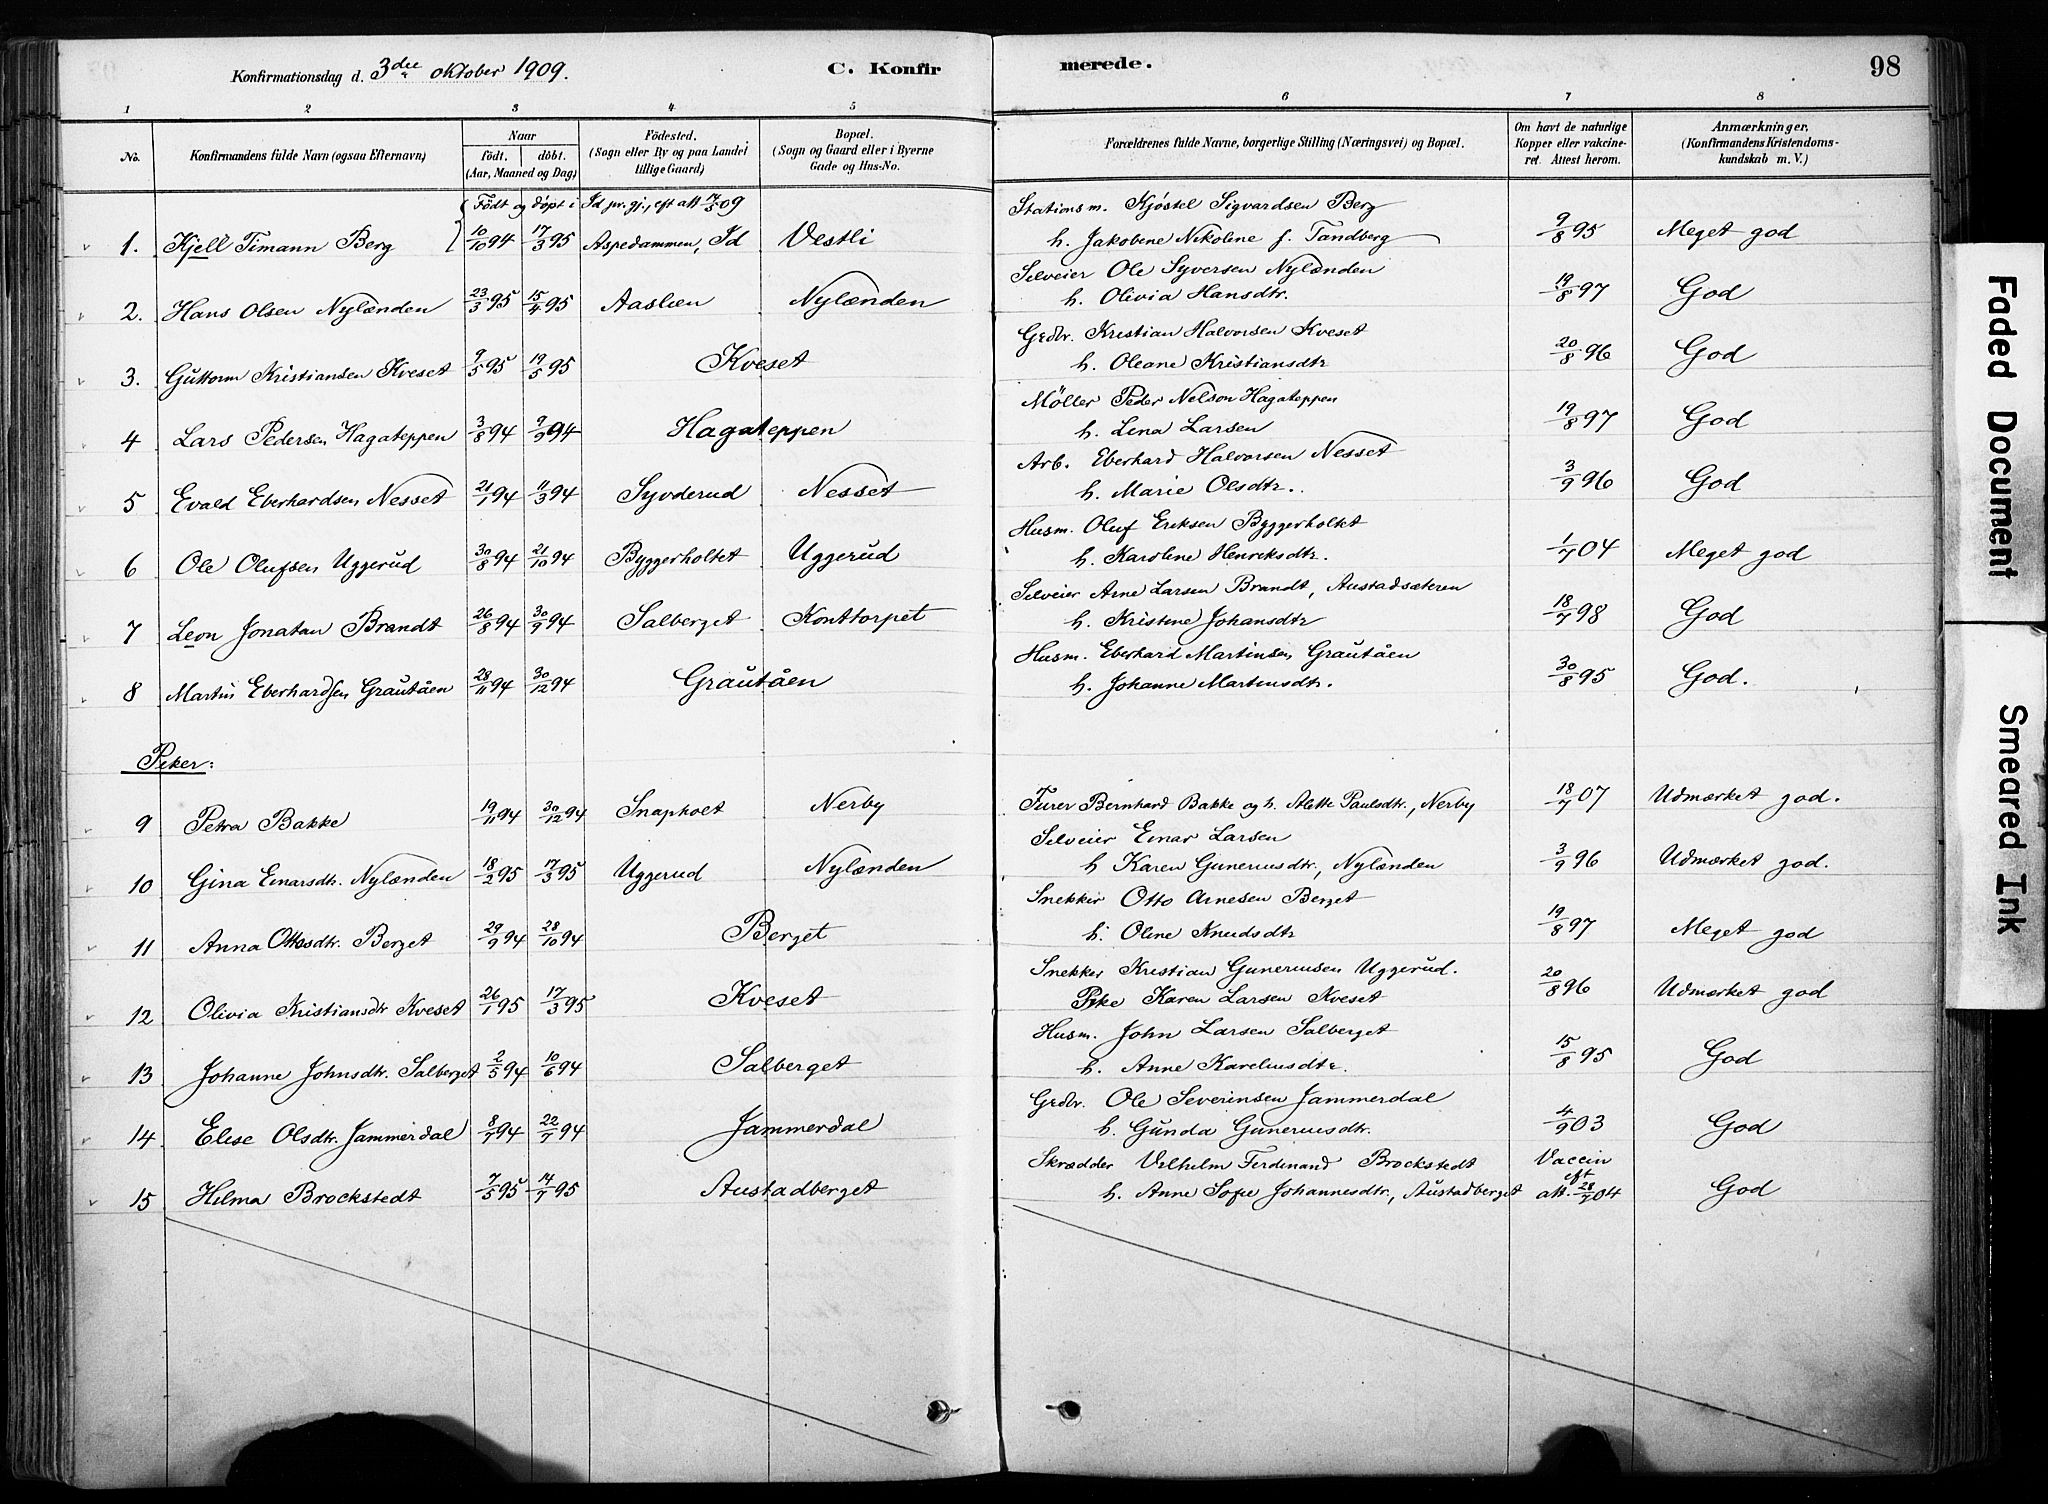 Konfirmationsdag d. 3die oktober 1909.
C. Konfirmerede.
98
1 2 3 4 5 6 7 8
No.
Konfirmandens fulde Navn (ogsaa Efternavn)
Naar
födt. döbt.
(Aar, Maaned og Dag)
Födested.
(Sogn eller By og paa Landet
tillige Gaard)
Bopæl.
(Sogn og Gaard eller i Byerne
Gade og Hus-No.
Forældrenes fulde Navne, borgerlige Stilling (Næringsvei) og Bopæl.
Om havt de naturlige
Kopper eller vakcine-
ret. Attest herom.
Anmærkninger.
(Konfirmandens Kristendoms-
kundskab m. V.)
Født og døpt i Id pr.gj., eft att 17/5 09
Stationsm. Kjøstel Sigvardsen Berg
1. Kjell Timann Berg 10/10 94 17/3 95 Aspedammen, Id Vestli h. Jakobine Nikoline f. Tandberg 9/8 95 Meget god
Selveier Ole Syversen Nylænden
2. Hans Olsen Nylænden 23/3 95 15/4 95 Aaslien Nylænden h. Olivia Hansdtr. 19/8 97 God
Grdbr. Kristian Halvorsen Kveset
3. Guttorm Kristiansen Kveset 9/5 95 19/5 95 Kveset h. Oleane Kristiansdtr 20/8 96 God
Møller Peder Nelson Hagateppen
4 Lars Pedersen Hagateppen 3/8 94 9/9 94 Hagateppen h. Lina Larsen 19/8 97 God
Arb. Eberhard Halvorsen Nesset
5 Evald Eberhardsen Nesset 21/1 94 11/3 94 Syvderud Nesset h. Marie Olsdtr. 3/9 96 God
Husm. Oluf Eriksen Byggerholtet
6 Ole Olufsen Uggerud 30/8 94 21/10 94 Byggerholtet Uggerud h. Karoline Henriksdtr. 1/7 04 Meget god
Selveier Arne Larsen Brandt, Austadsæteren
7 Leon Jonatan Brandt 26/8 94 30/9 94 Salberget Konttorpet h. Kristine Johansdtr 18/7 98 God
Husm. Eberhard Martinsen Grautåen
8 Martin Eberhardsen Grautåen 28/11 94 30/12 94 Grautåen h. Johanne Martinsdtr. 30/8 95 God.
Piker:
9 Petra Bakke 19/11 94 30/12 94 Snapkoet Nerby Furer Bernhard Bakke og h. Alette Paulsdtr., Nerby 18/7 07 Udmærket god.
Selveier Einar Larsen
10 Gina Einarsdtr. Nylænden 18/2 95 17/3 95 Uggerud Nylænden h Karen Guneriusdtr., Nylænden 3/9 96 Udmærket god.
Snekker Otto Arnesen Berget
11 Anna Ottosdtr. Berget 29/9 94 28/10 94 Berget h. Oline Knudsdtr 19/8 97 Meget god
Snekker Kristian Guneriusen Uggerud.
12 Olivia Kristiansdtr Kveset 26/1 95 17/3 95 Kveset Pike Karen Larsen Kveset 20/8 96 Udmærket god
Husm. John Larsen Salberget
13 Johanne Johnsdtr. Salberget 2/5 94 10/6 94 Salberget h. Anne Kareliusdtr. 15/8 95 God
Grdbr. Ole Severinsen Jammerdal
14 Elise Olsdtr. Jammerdal 8/7 94 22/7 94 Jammerdal h. Gunda Guneriusdtr. 4/9 03 God
Skrædder Vilhelm Ferdinand Brockstedt Vaccin
15 Hilma Brockstedt 7/5 95 14/7 95 Austadberget h. Anne Sofie Johannesdtr, Austadberget eft att. 28/7 04 God
Faded Document
Smeared Ink